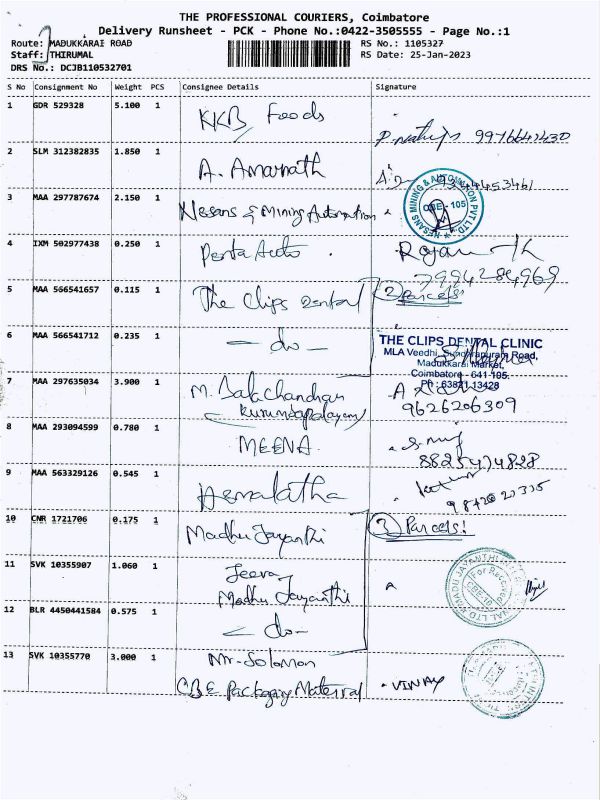 THE PROFESSIONAL COURIERS, Coimbatore
Delivery Runsheet - PCK - Phone No.:0422-3505555 - Page No.:1
Route: MADUKKARAI ROAD RS No.: 1105327
Staff: THIRUMAL RS Date: 25-Jan-2023
DRS No.: DCJB110532701
S No Consignment No Weight PCS Consignee Details Signature
1 GDR 529328 5.100 1 KKB Foods
2 SLM 312382835 1.850 1 A. Amarnath
3 MAA 297787674 2.150 1 Nesans & Mining Automation
NESANS MINING & AUTOMATION PVT LTD
CBE - 105
4 IXM 502977438 0.250 1 Penta Auto
7994284969
5 MAA 566541657 0.115 1 The Clips Dental 2 Parcels!
6 MAA 566541712 0.235 1 - do -
THE CLIPS DENTAL CLINIC
MLA Veedhi, Sundarapuram Road,
Madukkarai Market,
Coimbatore - 641 105.
Ph : 63821 13428
7 MAA 297635034 3.900 1 M. Balachandran
9626206309
8 MAA 293094599 0.780 1 MEENA
8825474828
9 MAA 563329126 0.545 1 Hemalatha
10 CNR 1721706 0.175 1 Madhu Jayanthi 3 Parcels!
11 SVK 10355907 1.060 1 Jeeva
Madhu Jayanthi
12 BLR 4450441584 0.575 1 - do -
13 SVK 10355770 3.000 1 Mr. Solomon
CBE Packaging Material VINAY